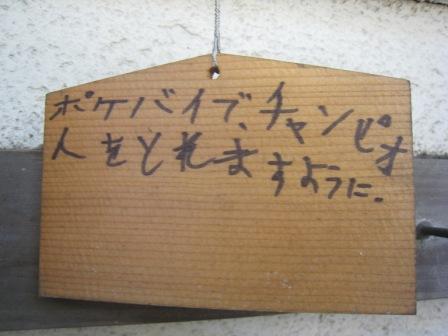 ポケバイで、チャンピオ
人をとれますように.